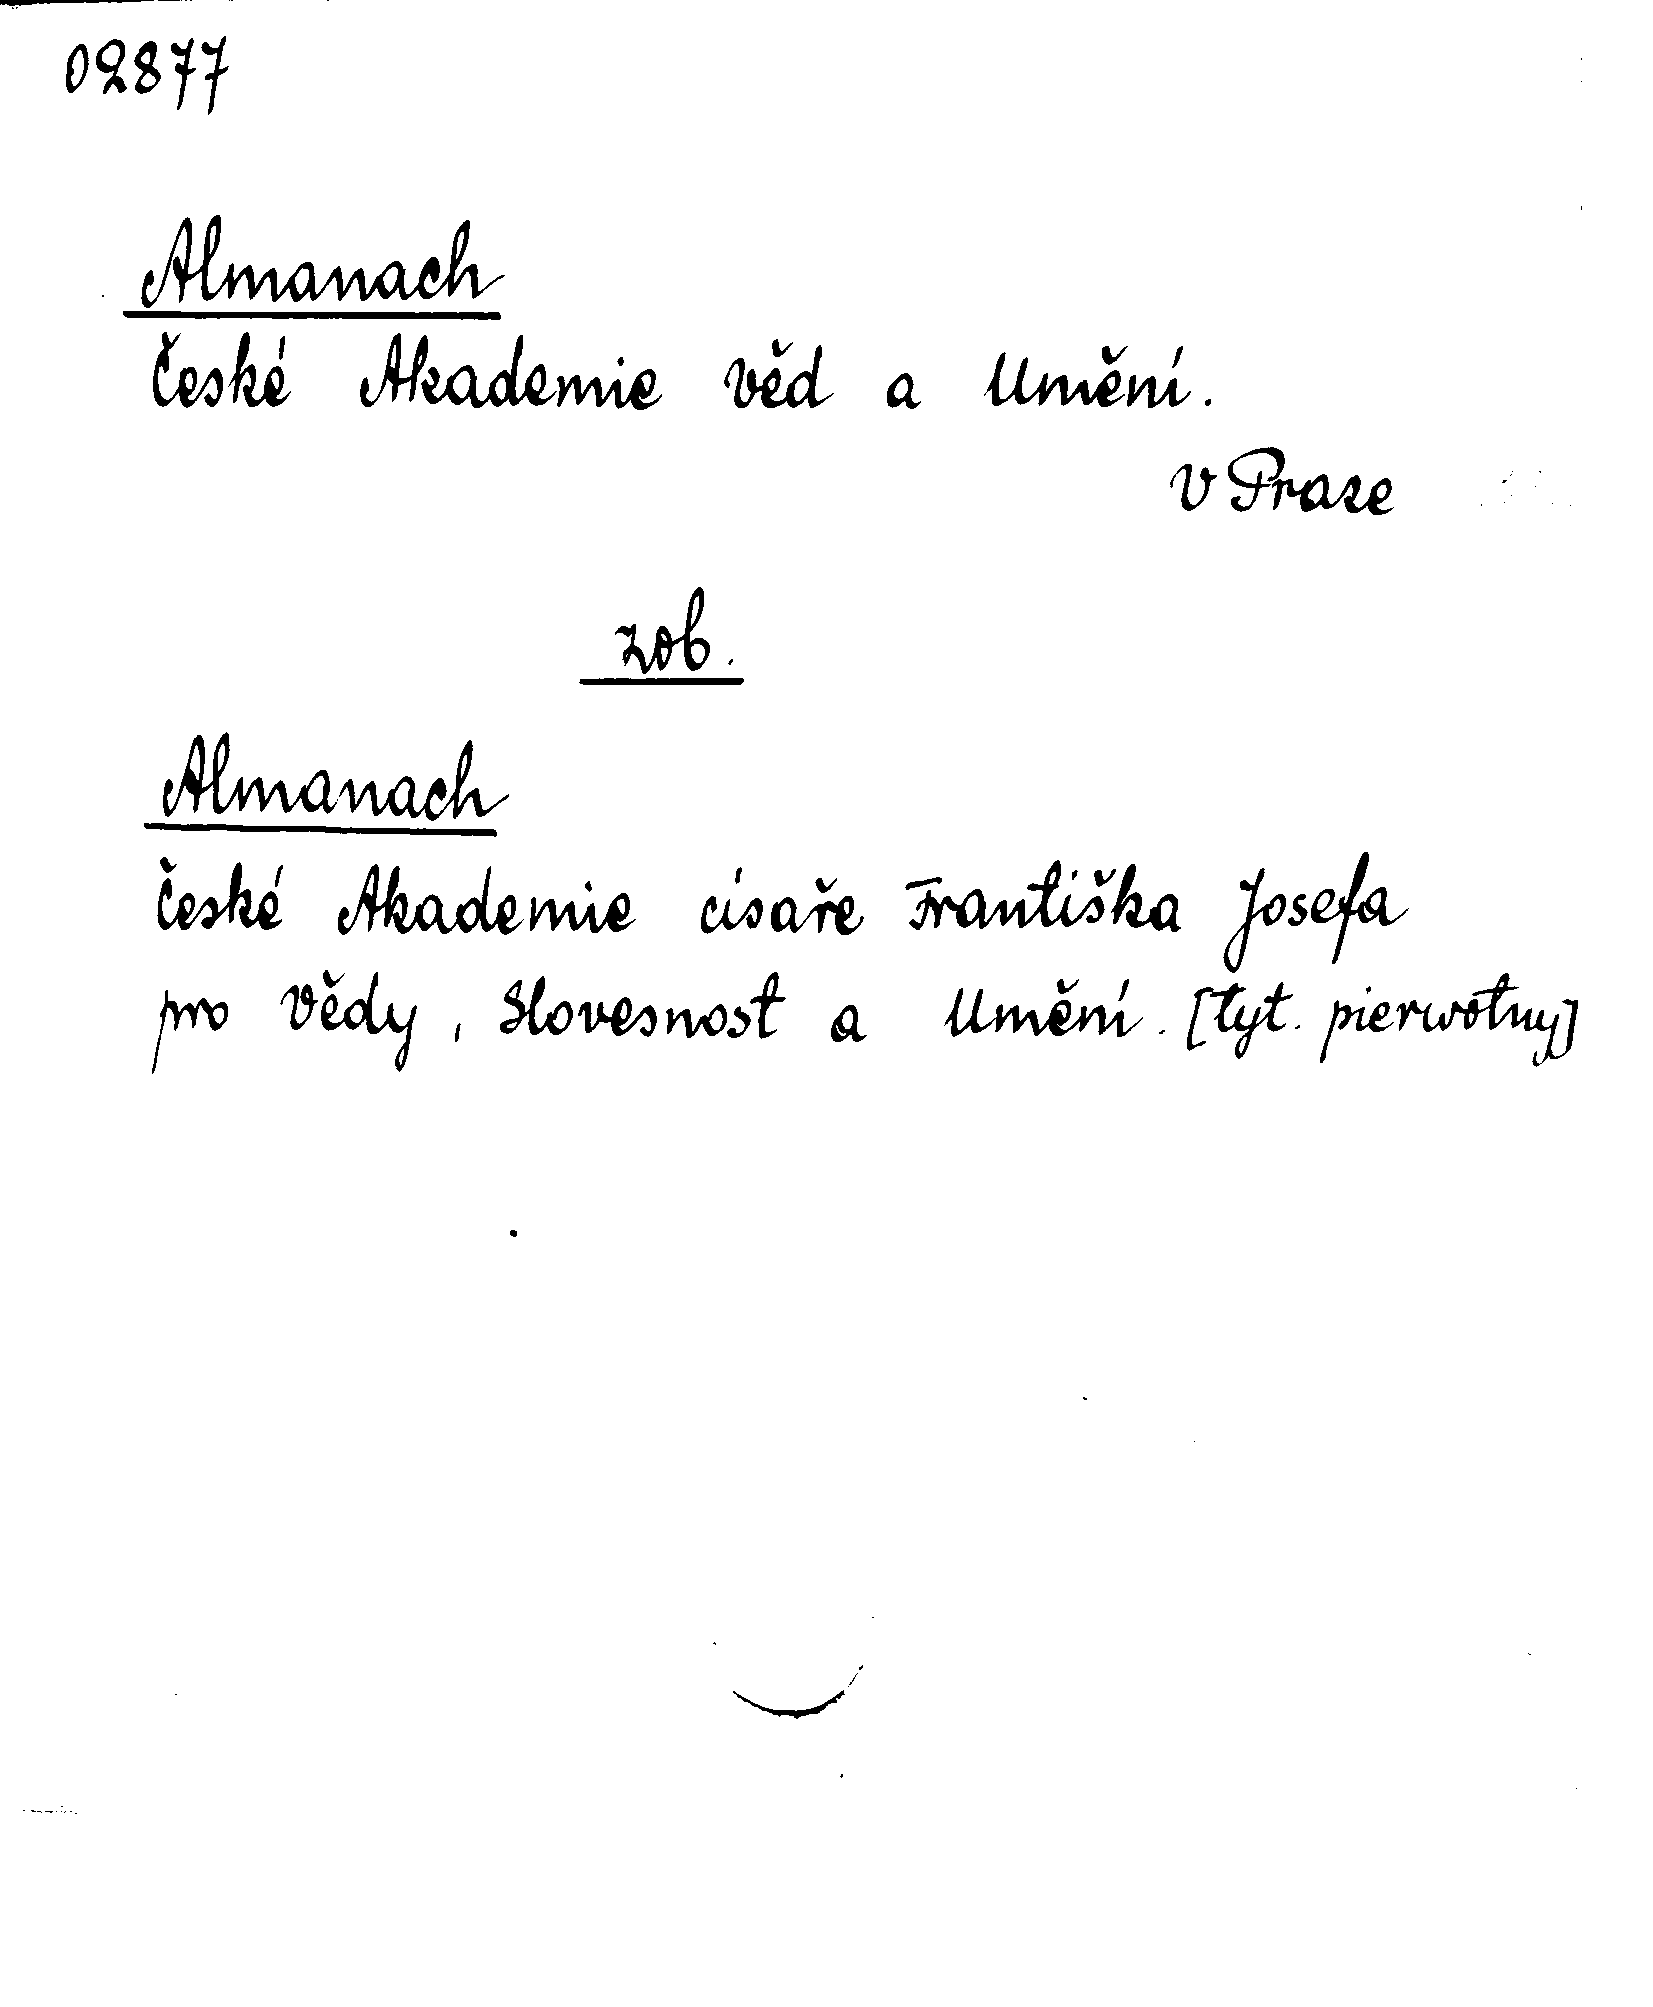 02877
Almanach
České Akademie Věd a Umění.
v Praze
zob.
Almanach
České Akademie císaře Františka Josefa
pro Vědy, Slovesnost a Umění. [tyt. pierwotny]